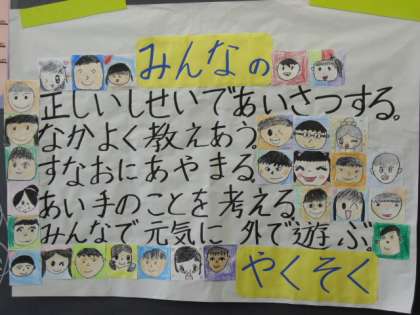 みんなの
正しいしせいであいさつする。
なかよく教えあう。
すなおにあやまる
あい手のことを考える
みんなで元気に外で遊ぶ
やくそく